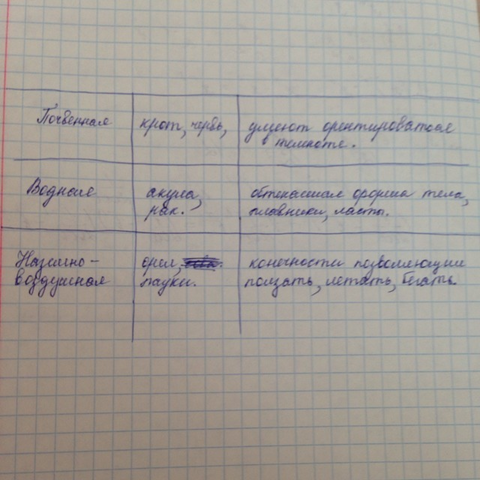 Почвенная
крот, червь,
умеют орентироваться
темноте.
Водные
акула,
рак.
обтекаемая форма тела,
плавники, ласты.
Наземно-
воздушная
орел,
пауки.
конечности позволяющие
ползать, летать, бегать.